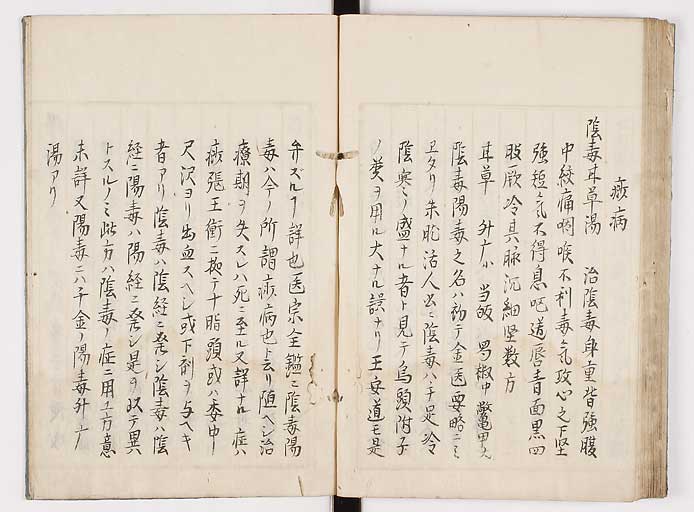 痧病
陰毒甘草湯 治陰毒身重背強腹
中絞痛咽喉不利毒気攻心之下堅
強短気不得息嘔逆唇青面黒四
肢厥冷其脉沉細堅数方
甘草 升广 当皈 蜀椒中 鱉甲大
陰毒陽毒之名ハ初テ金匱要略ニミ
ヱタリ朱肱活人書ニ陰毒ハ手足冷
陰寒ノ盛ナル者ト見テ烏頭附子
ノ葯ヲ用ル大ナル誤ナリ王安道モ是
弁ズルヿ詳也医宗金鑑ニ陰毒陽
毒ハ今ノ所謂痧病也ト云リ随ベシ治
療期ヲ失スレハ死ニ至ル又詳ナル症ハ
痧張玉衝ニ
テ十指頭或ハ委中
尺沢ヨリ出血スヘシ或下剤ヲ与ヘキ
者アリ陰毒ハ陰経ニ発シ陰毒ハ陰
経ニ陽毒ハ陽経ニ発シ是ヲ以テ異
トスルノミ此方ハ陰毒ノ症ニ用ユ方意
未詳又陽毒ニハ千金ノ陽毒升广
湯アリ